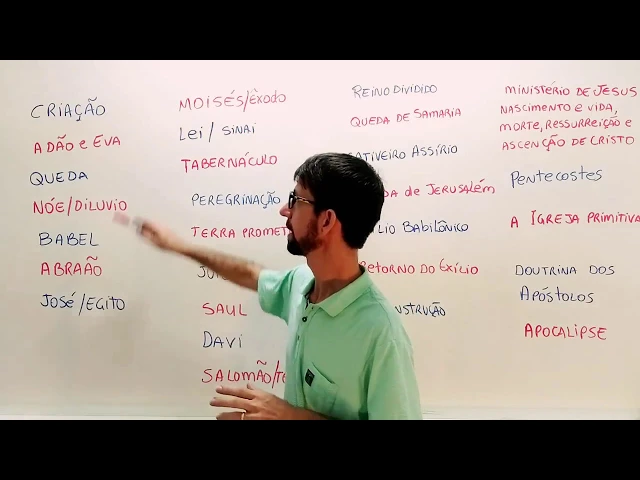 CRIAÇÃO
ADÃO e EVA
QUEDA
NÓE/DILUVIO
BABEL
ABRAÃO
JOSÉ/EGITO
MOISÉS/ÊXODO
LEI/SINAI
TABERNÁCULO
PEREGRINAÇÃO
TERRA
SAUL
DAVI
SALOMÃO/
REINO DIVIDIDO
QUEDA DE SAMARIA
ASSÍRIO
DE JERUSALÉM
BABILÔNICO
RETORNO DO EXÍLIO
MINISTÉRIO DE JESUS
NASCIMENTO E VIDA,
MORTE, RESSURREIÇÃO E
ASCENÇÃO DE CRISTO
PENTECOSTES
A IGREJA PRIMITIVA
DOUTRINA DOS
APÓSTOLOS
APOCALIPSE